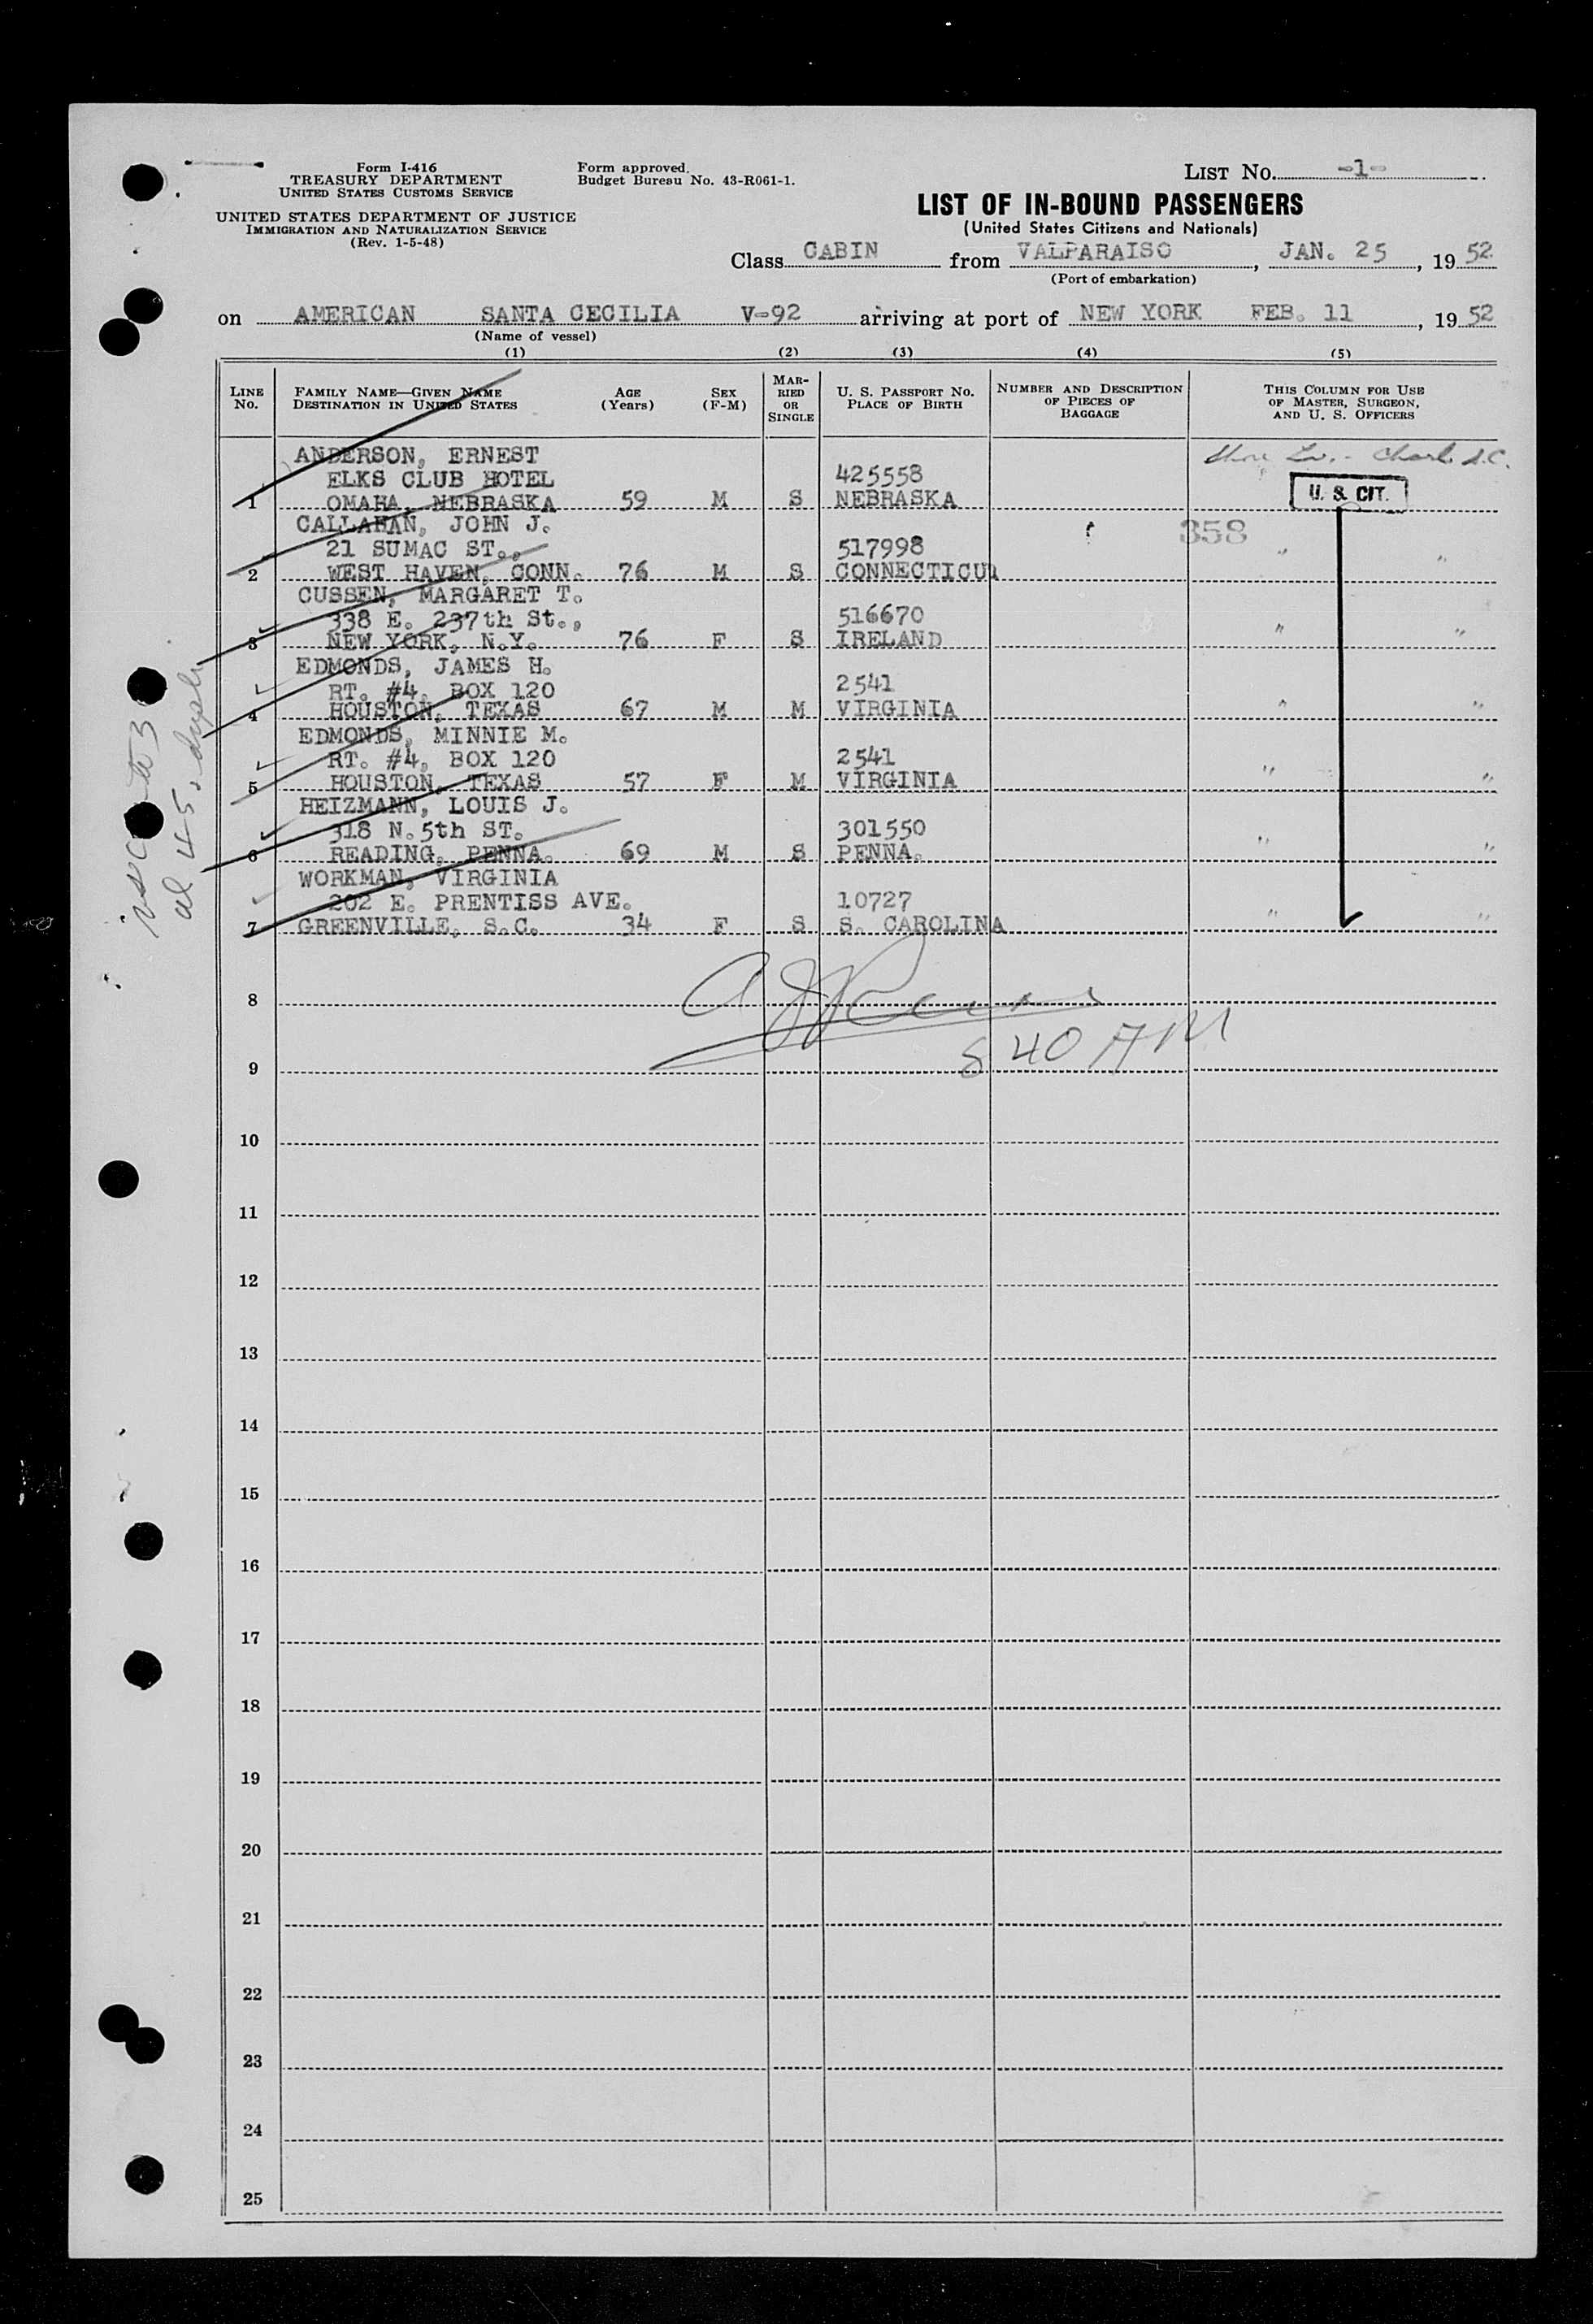 Form I-416
TREASURY DEPARTMENT
UNITED STATES CUSTOMS SERVICE
UNITED STATES DEPARTMENT OF JUSTICE
IMMIGRATION AND NATURALIZATION SERVICE
(Rev. 1-5-48)
Form approved.
Budget Bureau No. 43-R061-1.
LIST NO. -1-
LIST OF IN-BOUND PASSENGERS
(United States Citizens and Nationals)
Class CABIN from VALPARAISO, JAN. 25, 1952
(Port of embarkation)
on AMERICAN SANTA CECILIA V-92 arriving at port of NEW YORK FEB. 11, 1952
(Name of vessel)
(1) (2) (3) (4) (5)
LINE NO.
FAMILY NAME—GIVEN NAME
DESTINATION IN UNITED STATES
AGE
(Years)
SEX
(F-M)
MAR-
RIED
OR
SINGLE
U. S. PASSPORT NO.
PLACE OF BIRTH
NUMBER AND DESCRIPTION
OF PIECES OF
BAGGAGE
THIS COLUMN FOR USE
OF MASTER, SURGEON,
AND U. S. OFFICERS
ANDERSON, ERNEST
ELKS CLUB HOTEL 425558
1 OMAHA, NEBRASKA 59 M S NEBRASKA
U. S. CIT.
CALLAHAN, JOHN J.
358
21 SUMAC ST., 517998 " "
2 WEST HAVEN, CONN. 76 M S CONNECTICUT
CUSSEN, MARGARET T.
338 E. 237th St., 516670 " "
3 NEW YORK, N.Y. 76 F S IRELAND
EDMONDS, JAMES H.
RT. #4, BOX 120 2541
4 HOUSTON, TEXAS 67 M M VIRGINIA " "
EDMONDS, MINNIE M.
RT. #4, BOX 120 2541
5 HOUSTON, TEXAS 57 F M VIRGINIA " "
HEIZMANN, LOUIS J.
318 N. 5th ST. 301550
6 READING, PENNA. 69 M S PENNA. " "
WORKMAN, VIRGINIA
202 E. PRENTISS AVE. 10727
7 GREENVILLE, S.C. 34 F S S. CAROLINA " "
8
840 AM
9
10
11
12
13
14
15
16
17
18
19
20
21
22
23
24
25